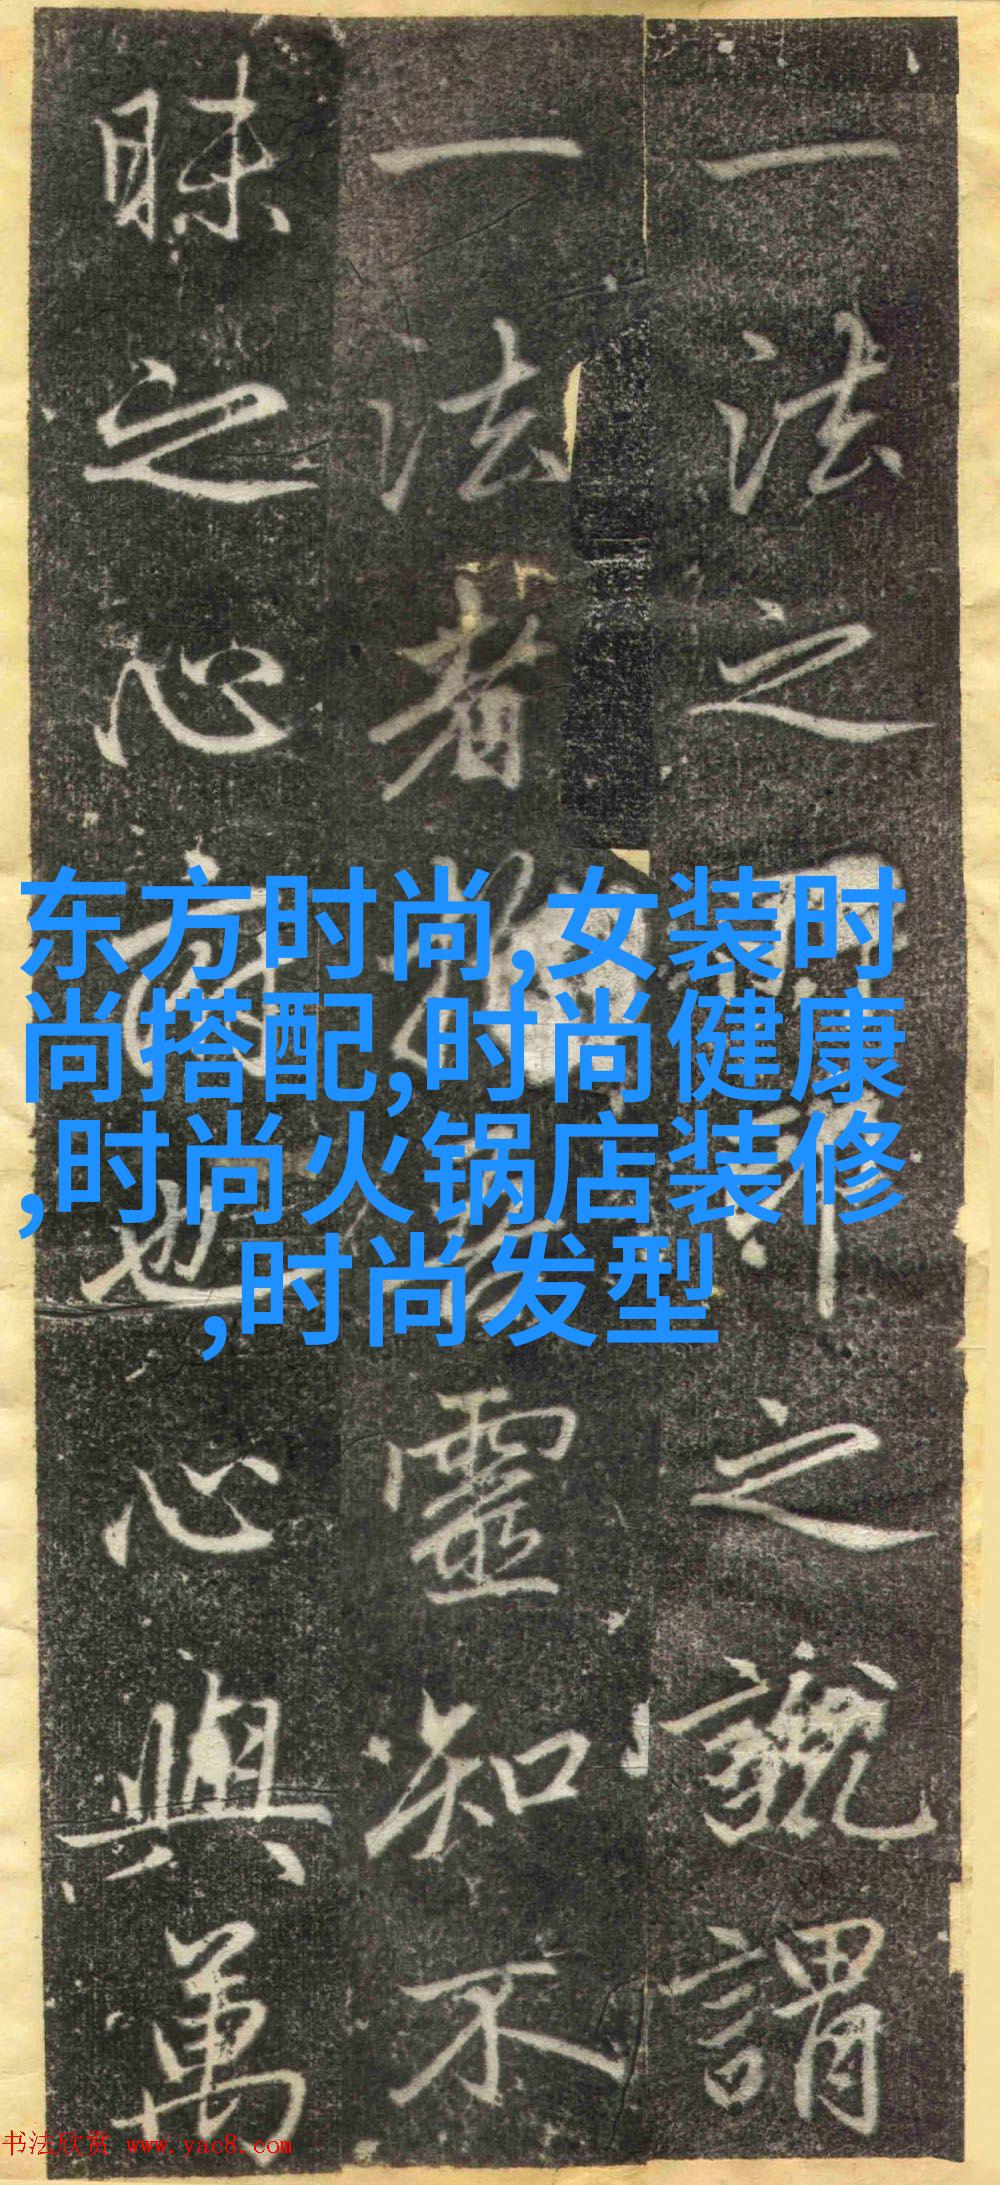 一法之之謂
一法者靈知不
昧之心也心與萬
东方时尚,女装时
尚搭配,时尚健康
,时尚火锅店装修
,时尚发型
书法欣赏 www.yac8.com